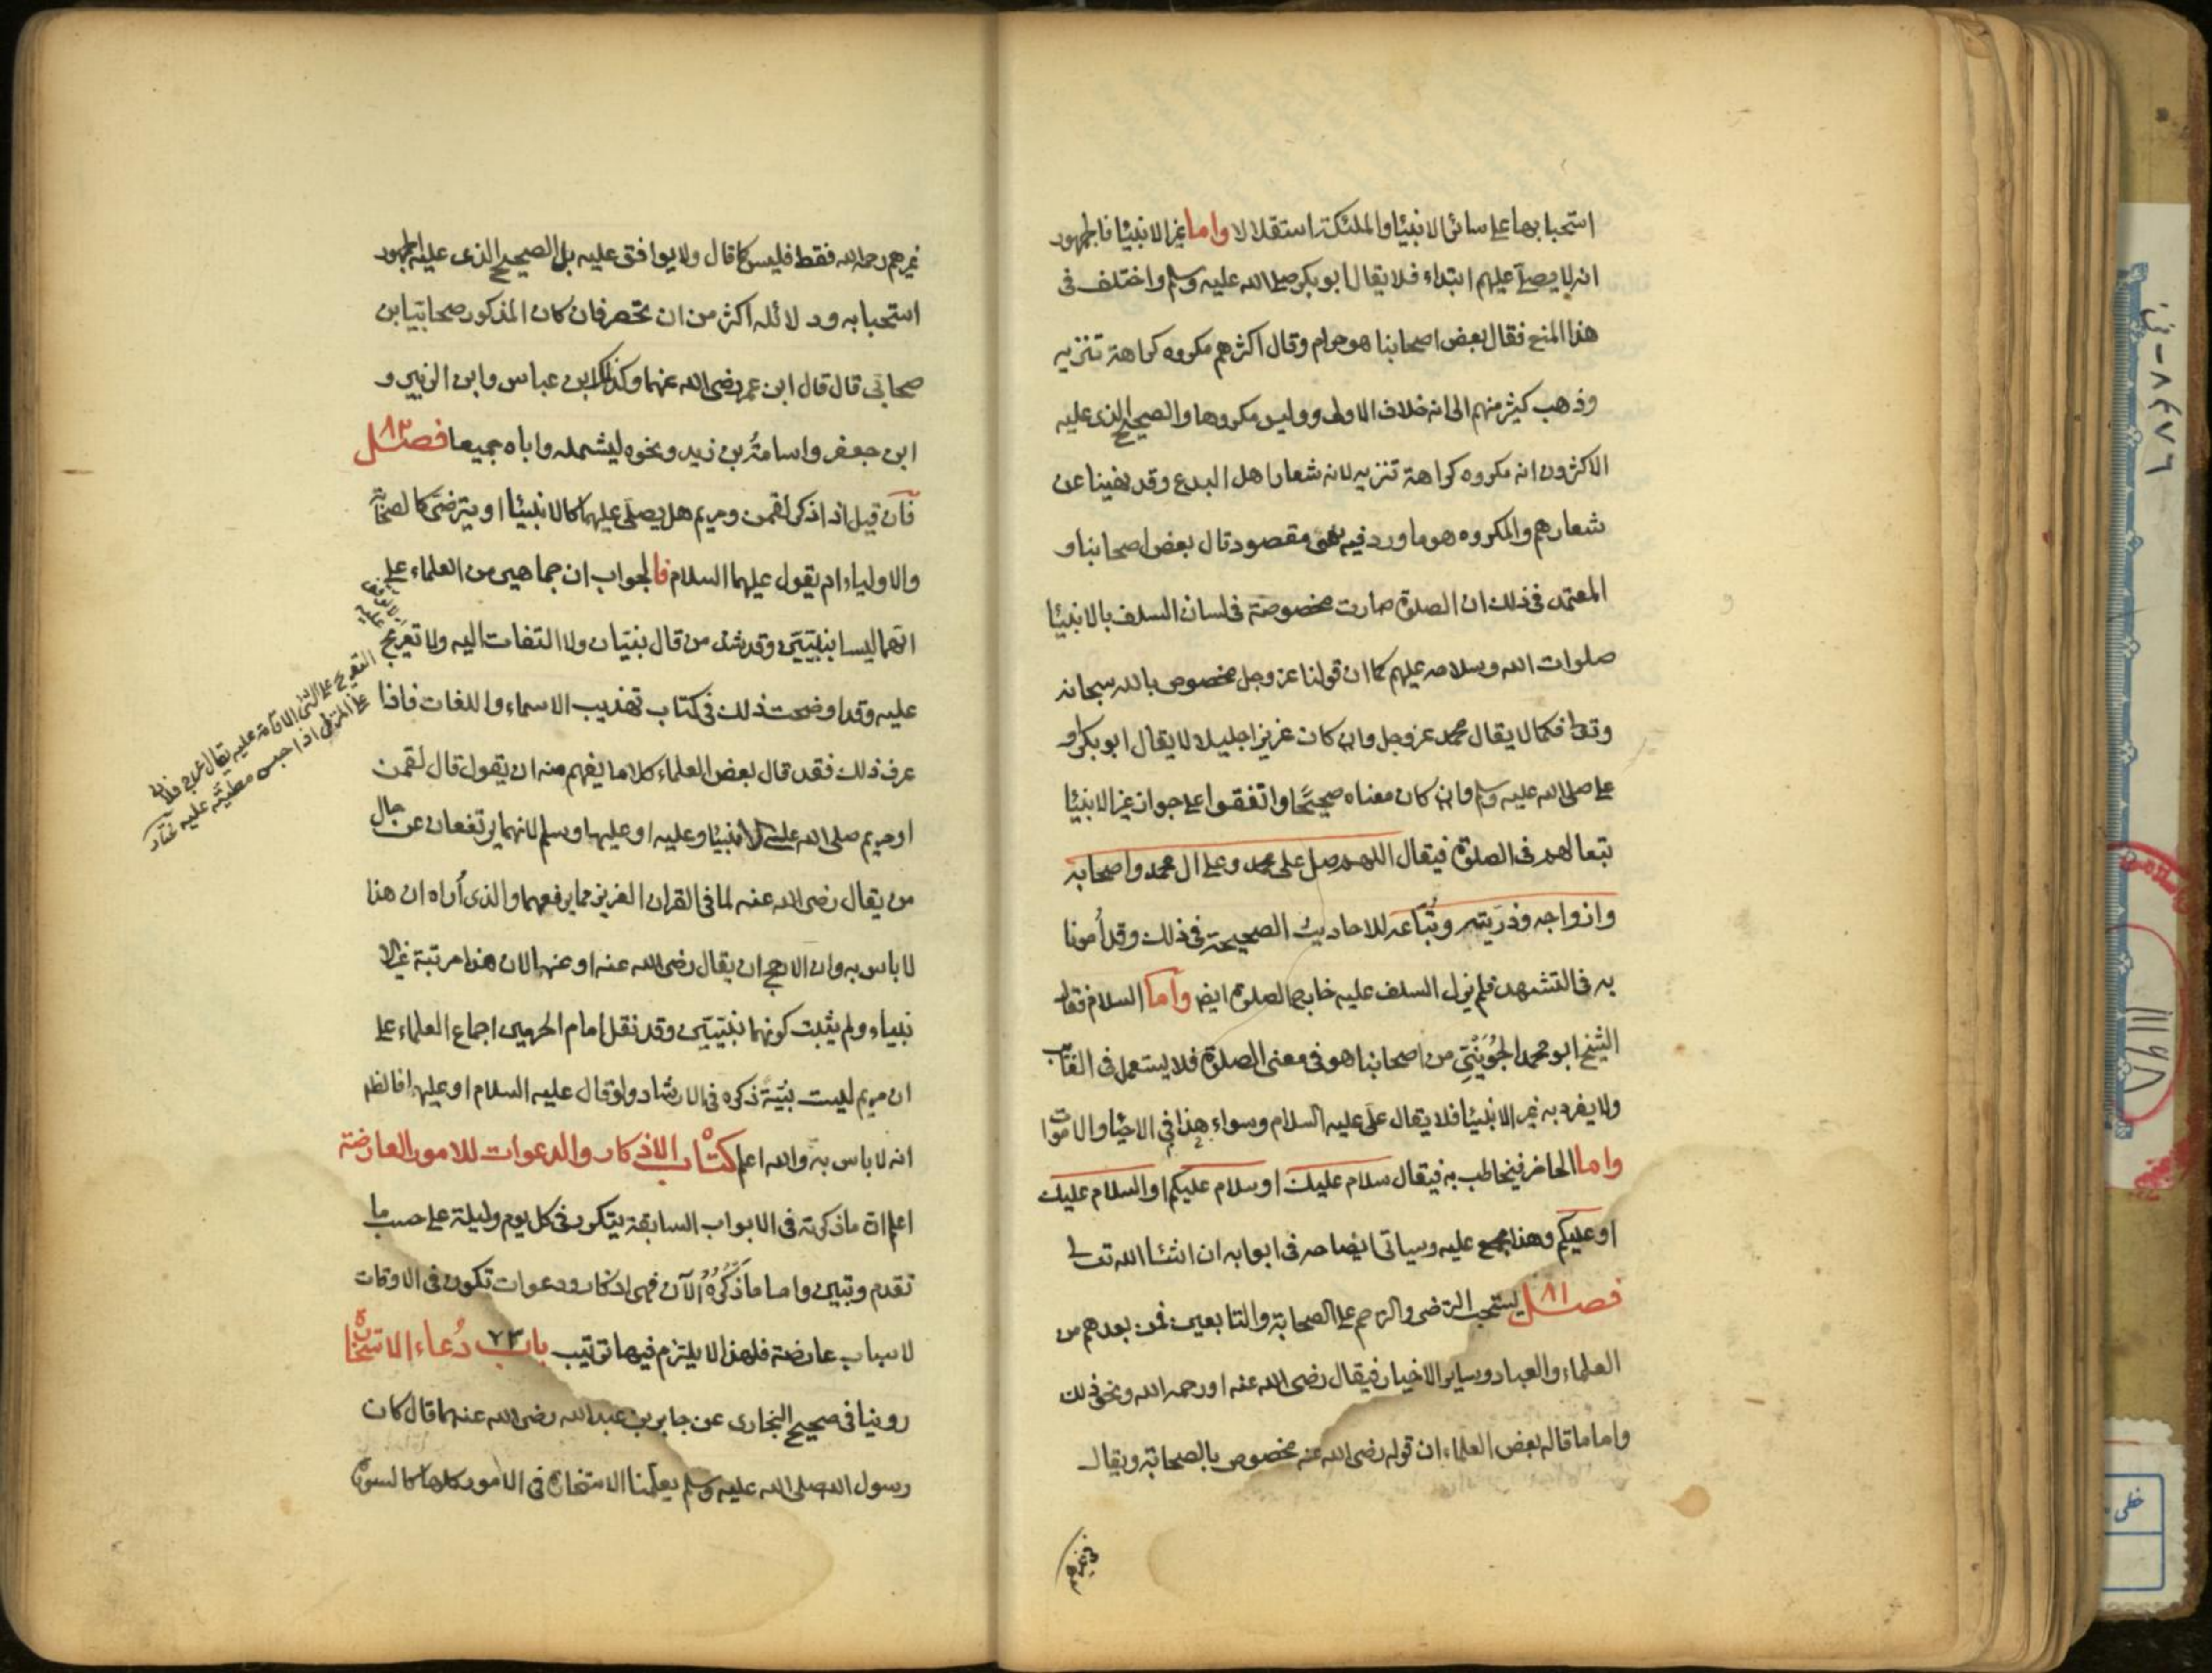 استحبابها على سائر الانبيا والملئكة استقلالا واما غير الانبيا فالجمهور
انه لا يصلى عليهم ابتداء فلا يقال ابو بكر صلى الله عليه وسلم واختلف فى
هذا المنع فقال بعض اصحابنا هو حرام وقال اكثرهم مكروه كراهة تنزيه
وذهب كثير منهم الى انه خلاف الاولى وليس مكروها والصحيح الذى عليه
الاكثرون انه مكروه كراهة تنزيه لانه شعار اهل البدع وقد نهينا عن
شعارهم والمكروه هو ما ورد فيه نهى مقصود قال بعض اصحابنا و
المعتمد فى ذلك ان الصلوة صارت مخصوصة فى لسان السلف بالانبيا
صلوات الله وسلامه عليهم كما ان قولنا عز وجل مخصوص بالله سبحانه
وتعا فكما لا يقال محمد عز وجل وان كان عزيزا جليلا لا يقال ابو بكر او
على صلى الله عليه وسلم وان كان معناه صحيحًا واتفقوا على جواز غير الانبيا
تبعا لهم فى الصلوة فيقال اللهم صل على محمد وعلى ال محمد واصحابه
وازواجه وذريته وتُبّاعه للاحاديث الصحيحة فى ذلك وقد أمرنا
به فى التشهد فلم يزل السلف عليه خارج الصلوة ايضا واما السلام فقال
الشيخ ابو محمد الجُوَيْنِي من اصحابنا هو فى معنى الصلوة فلا يستعمل فى الغائب
ولا يفرد به غير الانبيا فلا يقال على عليه السلام وسواء هذا فى الاحيا والاموات
واما الحاضر فيخاطب به فيقال سلام عليك او سلام عليكم او السلام عليك
او عليكم وهذا مجمع عليه وسياتى ايضاحه فى ابوابه ان انشا الله تعالى
فصل ٨١ يستحب الترضى والترحم على الصحابة والتابعين فمن بعدهم من
العلماء والعباد وساير الاخيار فيقال رضى الله عنه او رحمه الله ونحو ذلك
واما ما قاله بعض العلماء ان قوله رضى الله عنه مخصوص بالصحابة ويقال
غيرهم رحمه الله فقط فليس كما قال ولا يوافق عليه بل الصحيح الذى عليه الجمهور
استحبابه ودلائله اكثر من ان تحصر فان كان المذكور صحابيا بن
صحابى قال قال ابن عمر رضى الله عنهما وكذلك ابن عباس وابن الزبير و
ابن جعفر واسامةُ بن زيد ونحوه ليشمله واباه جميعا فصل ٨٣
فان قيل اذا ذكر لقمن ومريم هل يصلى عليهما كالانبيا او يترضى كالصحابة
والاولياء ام يقول عليهما السلام فالجواب ان جماهير من العلماء على
انهما ليسا بنبيين وقد شذ من قال نبيان ولا التفات اليه ولا تعريج
عليه وقد اوضحت ذلك فى كتاب تهذيب الاسماء واللغات فاذا
عرف ذلك فقد قال بعض العلماء كلاما يفهم منه ان يقول قال لقمن
او مريم صلى الله على الانبيا وعليه او عليها وسلم لانهما يرتفعان عن حال
من يقال رضى الله عنه لما فى القران العزيز مما يرفعهما والذى أراه ان هذا
لا باس به وان الارجح ان يقال رضى الله عنه او عنها لان هذا مرتبة غير الا
نبياء ولم يثبت كونهما نبيين وقد نقل امام الحرمين اجماع العلماء على
ان مريم ليست نبيّة ذكره فى الارشاد ولو قال عليه السلام او عليها فالظاهر
انه لا باس به والله اعلم كتاب الاذكار والدعوات للامور العارضة
اعلم ان ما ذكرته فى الابواب السابقة يتكرر فى كل يوم وليلة على حسب ما
تقدم وتبين واما ما أذكره الآن فهى اذكار ودعوات تكون فى الاوقات
لاسباب عارضة فلهذا لا يلتزم فيها ترتيب باب ٢٣ دُعاء الاستخارة
روينا فى صحيح البخارى عن جابر بن عبد الله رضى الله عنهما قال كان
رسول الله صلى الله عليه وسلم يعلمنا الاستخارة فى الامور كلها كالسورة
التعريج على الشئ الاقامة عليه يقال عرج فلان
على المنزل اذا حبس مطيته عليه
غيرهم
٨٤٧٦
خطى